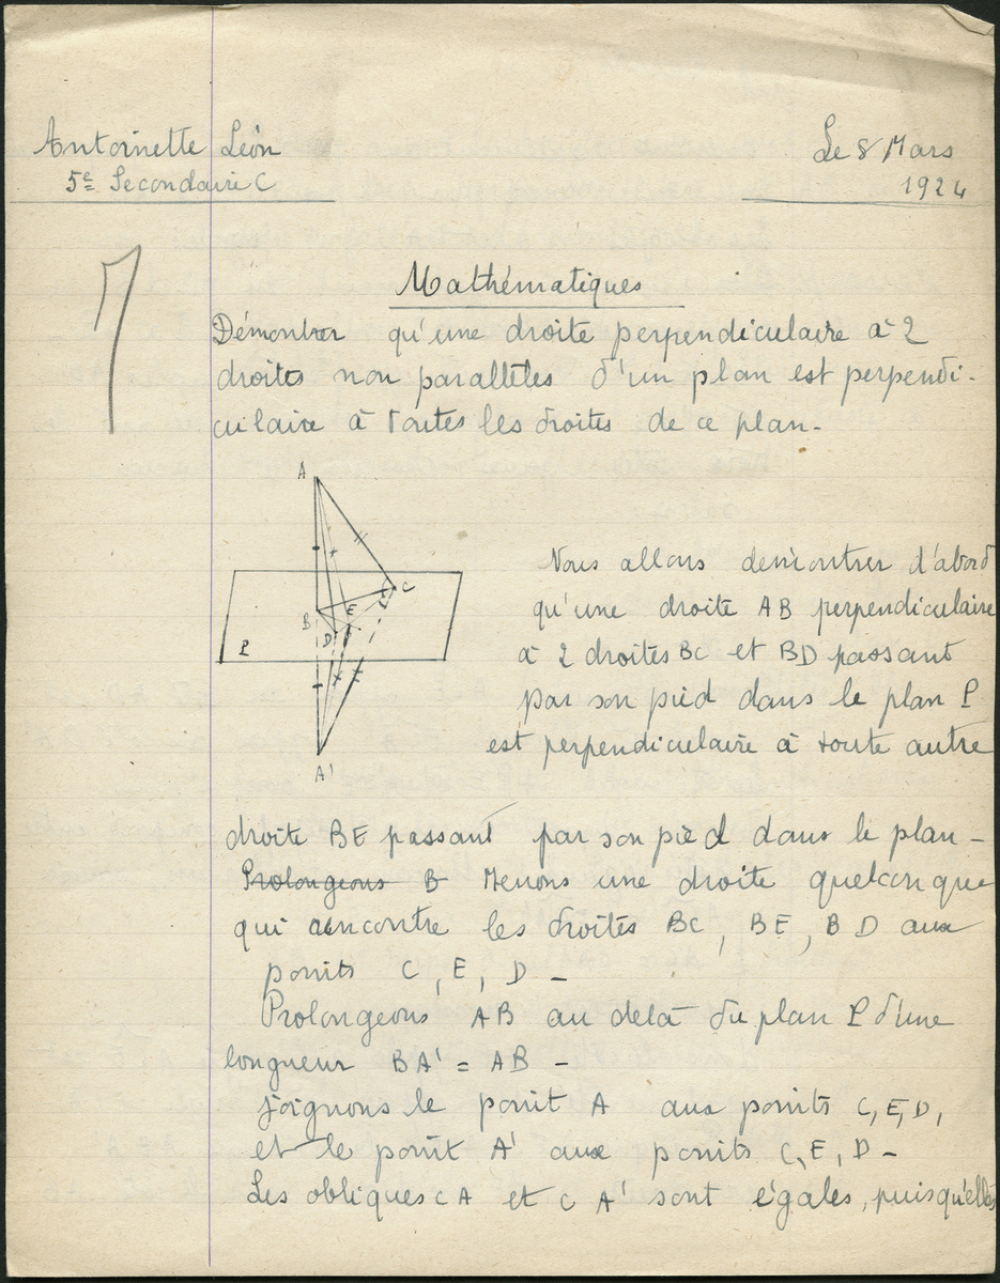 Antoinette Léon
5e Secondaire C
Le 8 Mars
1924
7
Mathématiques
Démontrer qu'une droite perpendiculaire à 2
droites non parallèles d'un plan est perpendi-
culaire à toutes les droites de ce plan.
A
C
E
B
D
P
A'
Nous allons démontrer d'abord
qu'une droite AB perpendiculaire
à 2 droites BC et BD passant
par son pied dans le plan P
est perpendiculaire à toute autre
droite BE passant par son pied dans le plan -
Prolongeons B Menons une droite quelconque
qui rencontre les droites BC, BE, BD aux
points C, E, D -
Prolongeons AB au delà du plan P d'une
longueur BA' = AB -
joignons le point A aux points C, E, D,
et le point A' aux points C, E, D -
Les obliques CA et CA' sont égales, puisqu'elles